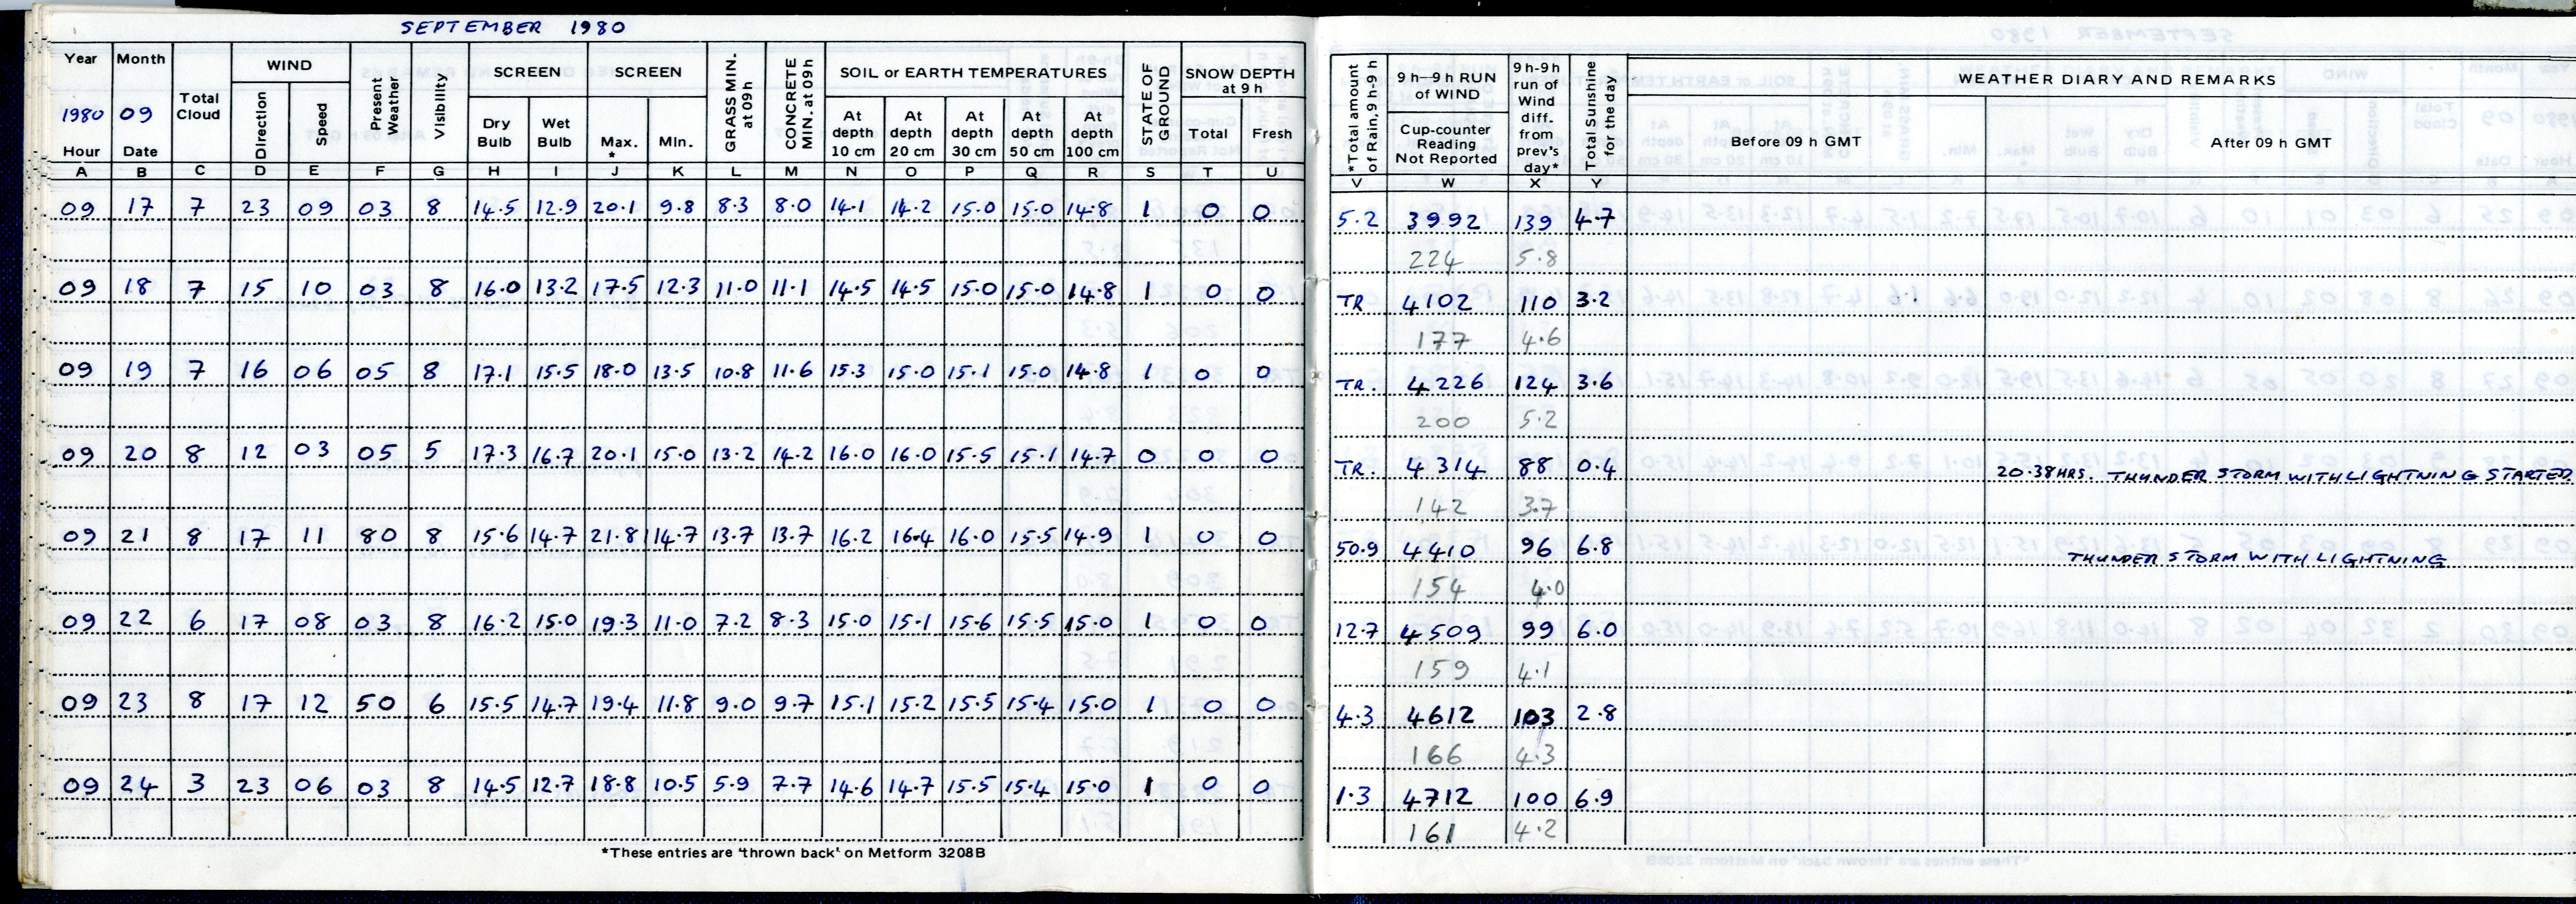 SEPTEMBER 1980
Year Month Total Cloud WIND Present Weather Visibility SCREEN SCREEN GRASS MIN. at 09h CONCRETE MIN. at 09h SOIL or EARTH TEMPERATURES STATE OF GROUND SNOW DEPTH at 9 h
1980 09 Direction Speed Dry Bulb Wet Bulb Max. * Min. At depth 10 cm At depth 20 cm At depth 30 cm At depth 50 cm At depth 100 cm Total Fresh
Hour Date
A B C D E F G H I J K L M N O P Q R S T U
09 17 7 23 09 03 8 14.5 12.9 20.1 9.8 8.3 8.0 14.1 14.2 15.0 15.0 14.8 1 0 0
09 18 7 15 10 03 8 16.0 13.2 17.5 12.3 11.0 11.1 14.5 14.5 15.0 15.0 14.8 1 0 0
09 19 7 16 06 05 8 17.1 15.5 18.0 13.5 10.8 11.6 15.3 15.0 15.1 15.0 14.8 1 0 0
09 20 8 12 03 05 5 17.3 16.7 20.1 15.0 13.2 14.2 16.0 16.0 15.5 15.1 14.7 0 0 0
09 21 8 17 11 80 8 15.6 14.7 21.8 14.7 13.7 13.7 16.2 16.4 16.0 15.5 14.9 1 0 0
09 22 6 17 08 03 8 16.2 15.0 19.3 11.0 7.2 8.3 15.0 15.1 15.6 15.5 15.0 1 0 0
09 23 8 17 12 50 6 15.5 14.7 19.4 11.8 9.0 9.7 15.1 15.2 15.5 15.4 15.0 1 0 0
09 24 3 23 06 03 8 14.5 12.7 18.8 10.5 5.9 7.7 14.6 14.7 15.5 15.4 15.0 1 0 0
*These entries are 'thrown back' on Metform 3208B
*Total amount of Rain, 9 h-9 h 9 h-9 h RUN of WIND 9 h-9h run of Wind diff. from prev's day* Total Sunshine for the day WEATHER DIARY AND REMARKS
Cup-counter Reading Not Reported Before 09 h GMT After 09 h GMT
V W X Y
5.2 3992 139 4.7
224 5.8
TR 4102 110 3.2
177 4.6
TR. 4226 124 3.6
200 5.2
TR. 4314 88 0.4 20.38HRS. THUNDER STORM WITH LIGHTNING STARTED
142 3.7
50.9 4410 96 6.8 THUNDER STORM WITH LIGHTNING
154 4.0
12.7 4509 99 6.0
159 4.1
4.3 4612 103 2.8
166 4.3
1.3 4712 100 6.9
161 4.2